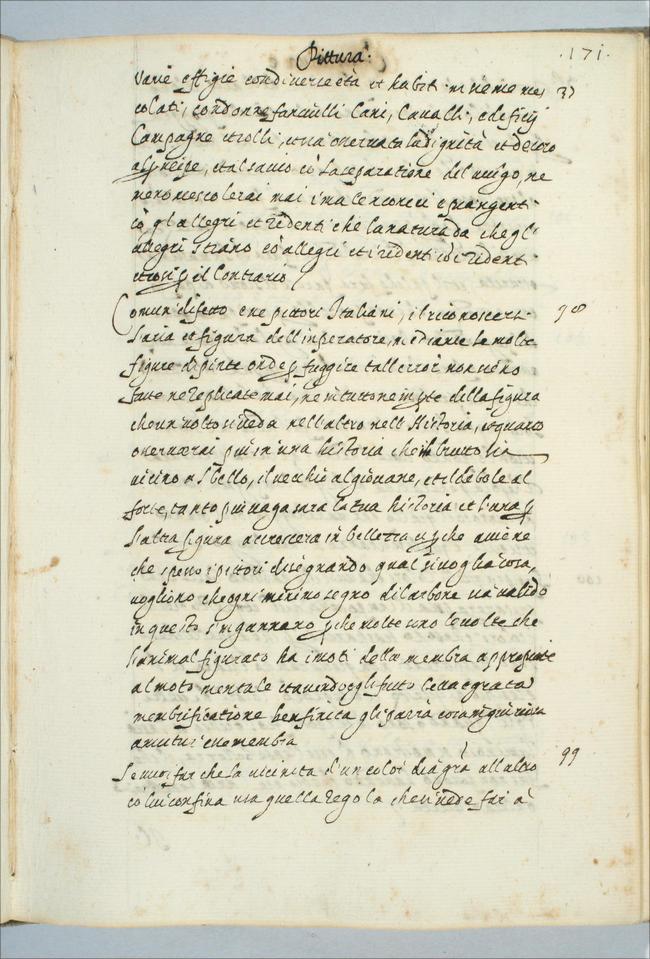 Pittura.
.171.
Varie effigie con diverse età et habiti insieme mes 97
colati, con donne fanciulli Cani, Cavalli, edeficij
Campagne et colli, et sia osservata la dignità et decoro
al principe, et al savio cõ la separatione del vulgo, ne
meno mescolerai mai i malenconici e piangenti
cõ gl'allegri et ridenti che la natura da che gl'
allegri stiano cõ allegri et i ridenti cõ i ridenti
et cosi p il Contrario
Comun difetto è ne pittori Italiani, il riconoscersi 98
l'aria et figura dell'inperatore, mediante le molte
figure dipinte onde p fuggire tall error non sieno
fatte ne replicate mai, ne in tutto ne in pte delle figura
che un volto si veda nell'altro nell'Historia, et quanto
osserverai piu in una historia che il brutto sia
vicino al bello, il vecchio al giovane, et il debole al
forte, tanto piu vaga sara la tua historia et l'una p
l'altra figura accrescera in bellezza et pche aviene
che spesso i pittori disegnando qual si voglia cosa,
vogliono che ogni minimo segno di carbone sia valido
in questo s'ingannano pche molte sono le volte che
l'animal figurato ha i moti delle membra apropriate
al moto mentale et havendo egli fatto bella et grata
membrificatione ben finita gli parrà cosa ingiuriosa
a mutar esse membra
Se vuoi far che la vicinita d'un color dia gra all'altro 99
cõ lui confina usa quella regola che si vede far a